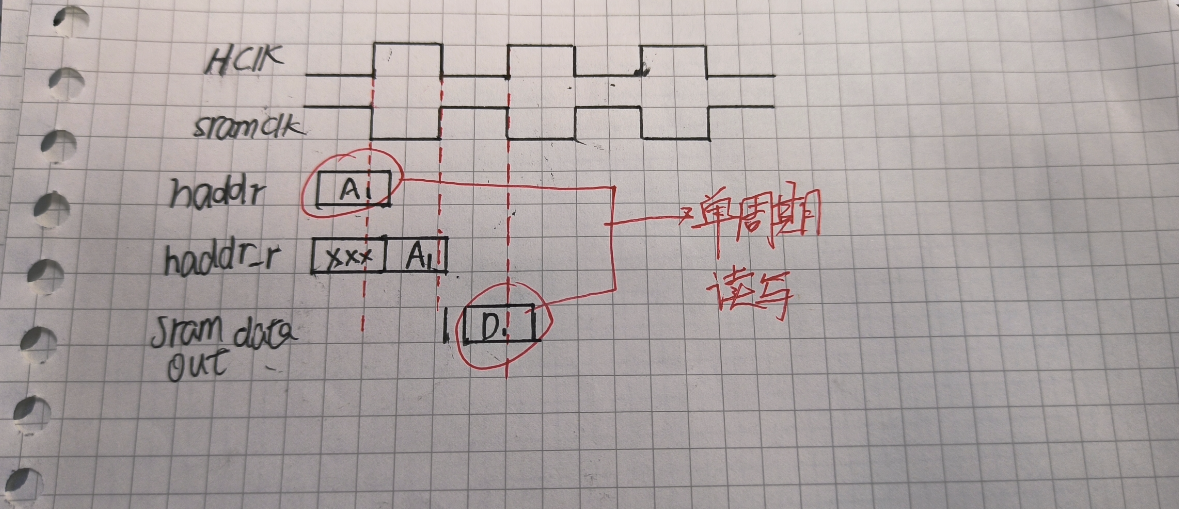 HClk
sramclk
haddr A1
haddr_r xxx A1
sram data
out
D1
单周期
读写